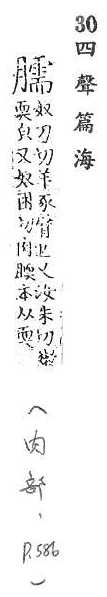 30四聲篇海
臑奴刀切羊豕臂也又汝朱切嫩
耎皃又奴困切肉腝本从耎
(肉部,P.586)